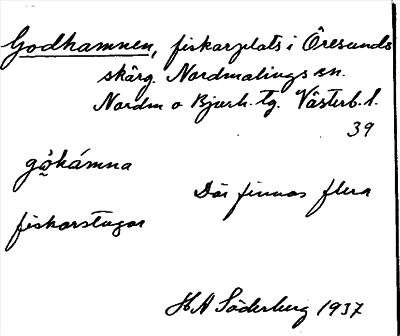 Godhamnen, fiskarplats i Öresunds
skärg. Nordmalings sn.
Nordm o Bjurh. tg. Västerb. l.
39
gòhámna
Där finnas flera
fiskarstugor
H A Söderberg 1937